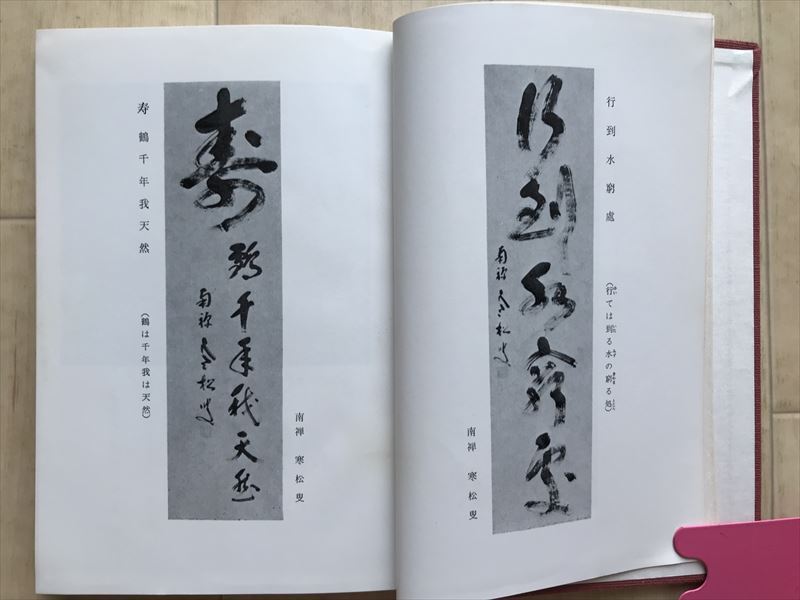 行到水窮處
(行ては到る水の窮る処)
行到水窮處
南禅寒松叟
南禅 寒松叟
寿 鶴千年我天然
(鶴は千年我は天然)
寿
鶴千年我天然
南禅寒松叟
南禅 寒松叟